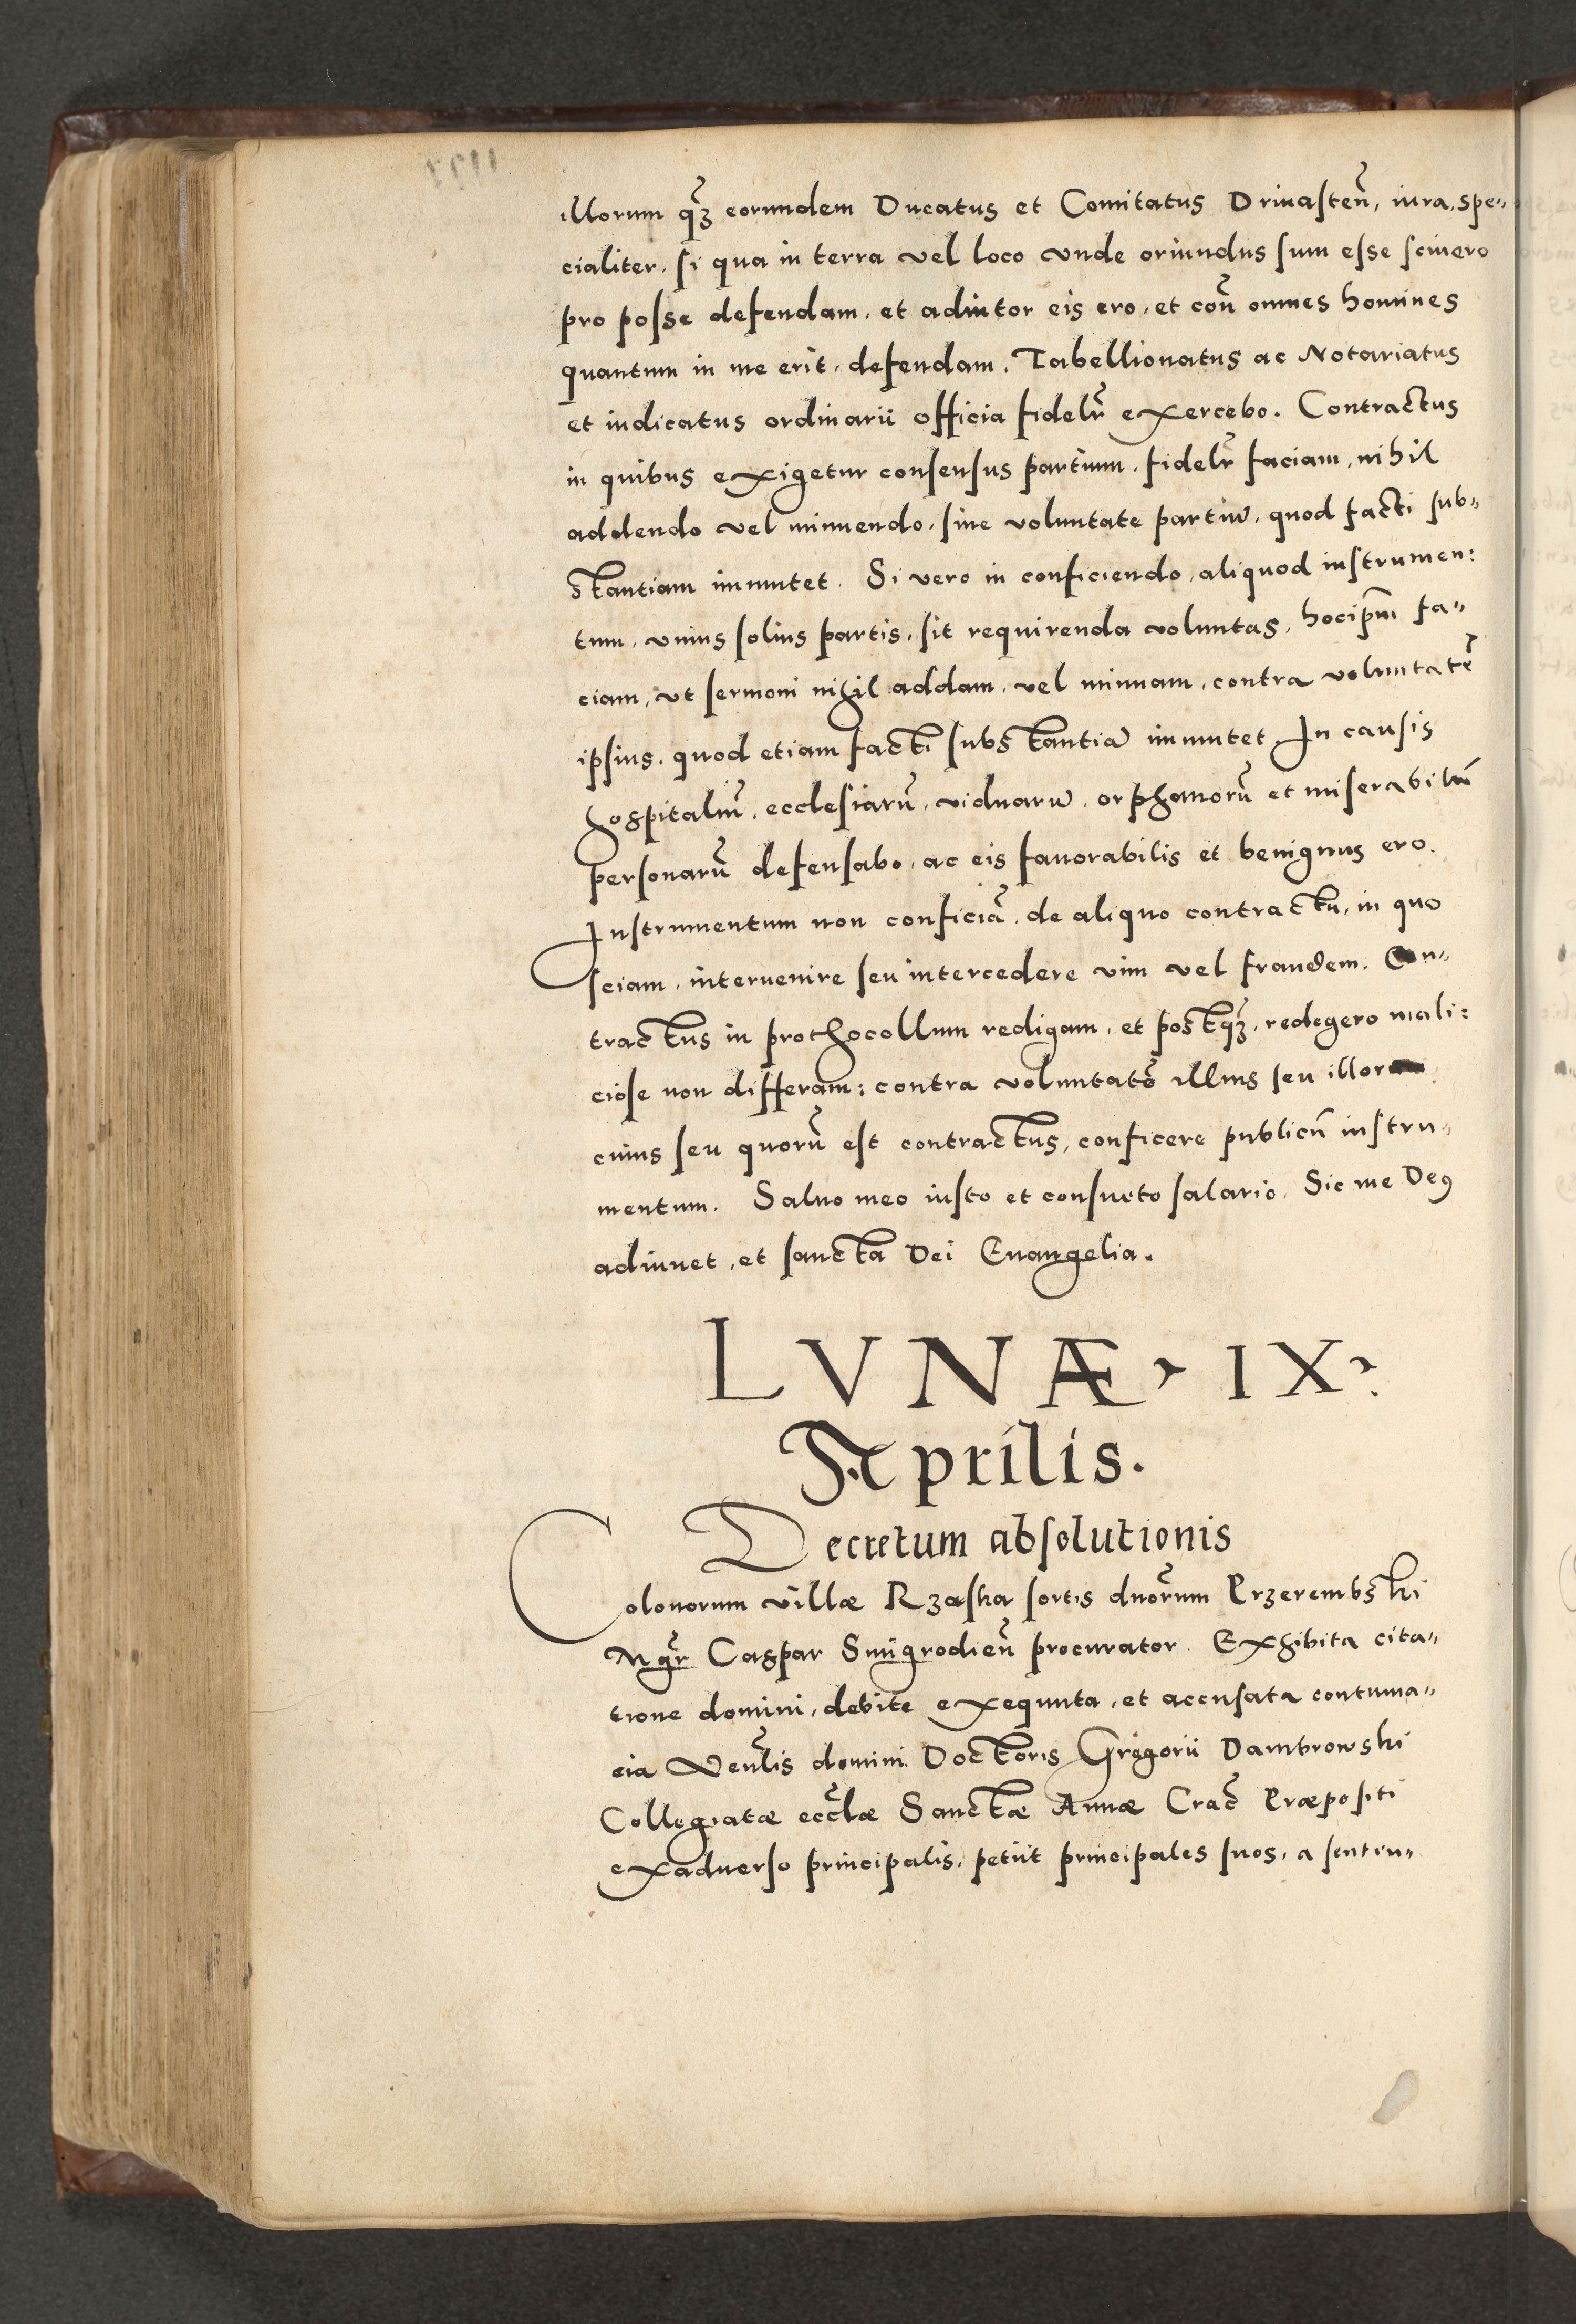 illorum q̃ꝫ eorundem Ducatus et Comitatus Drivasteñ, iura, spe„
cialiter, si qua in terra vel loco vnde oriundus sum esse scivero
pro posse defendam, et adiutor eis ero, et coñ omnes homines
quantum in me erit, defendam. Tabellionatus ac Notariatus
et iudicatus ordinarii officia fidelr̃ exercebo. Contractus
in quibus exigetur consensus partium, fidelr̃ faciam, nihil
addendo vel minuendo, sine voluntate partiũ, quod facti sub„
stantiam immutet. Si vero in conficiendo, aliquod instrumen:
tum, vnius solius partis, sit requirenda voluntas, hocip̃m fa„
ciam, vt sermoni nihil addam, vel minuam, contra voluntatẽ
ipsius, quod etiam facti substantiã immutet In causis
hospitaliũ, ecclesiarũ, viduarũ, orphanorũ et miserabiliũ
personarũ defensabo, ac eis fauorabilis et benignus ero.
Instrumentum non conficiã, de aliquo contractu, in quo
sciam, interuenire seu intercedere vim vel fraudem. Con„
tractus in prothocollum redigam, et postq̃ꝫ, redegero mali:
ciose non differam: contra voluntatẽ illius seu illorum
cuius seu quorũ est contractus, conficere publicũ instru„
mentum. Saluo meo iusto et consueto salario. Sic me Deꝯ
adiuuet, et sancta Dei Euangelia.
LVNÆ, IX,
Aprilis.
Decretum absolutionis
Colonorum villæ Rzaska sortis dnõrum Przerembski
Mgr̃ Caspar Smigrodieñ procurator. Exhibita cita„
tione domini, debite exequuta, et accusata contuma„
cia Veñlis domini Doctoris Gregorii Dambrowski
Collegiatæ ecc̃læ Sanctæ Annæ Crac̃ Præpositi
exaduerso principalis, petiit principales suos, a senten„